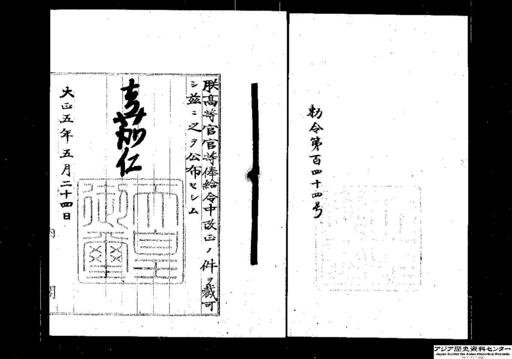 勅令第百四十四号
朕高等官官等俸給令中改正ノ件ヲ裁可
シ茲ニ之ヲ公布セシム
嘉仁
天皇御璽
大正五年五月二十四日
内閣
アジア歴史資料センター
Japan Center for Asian Historical Records